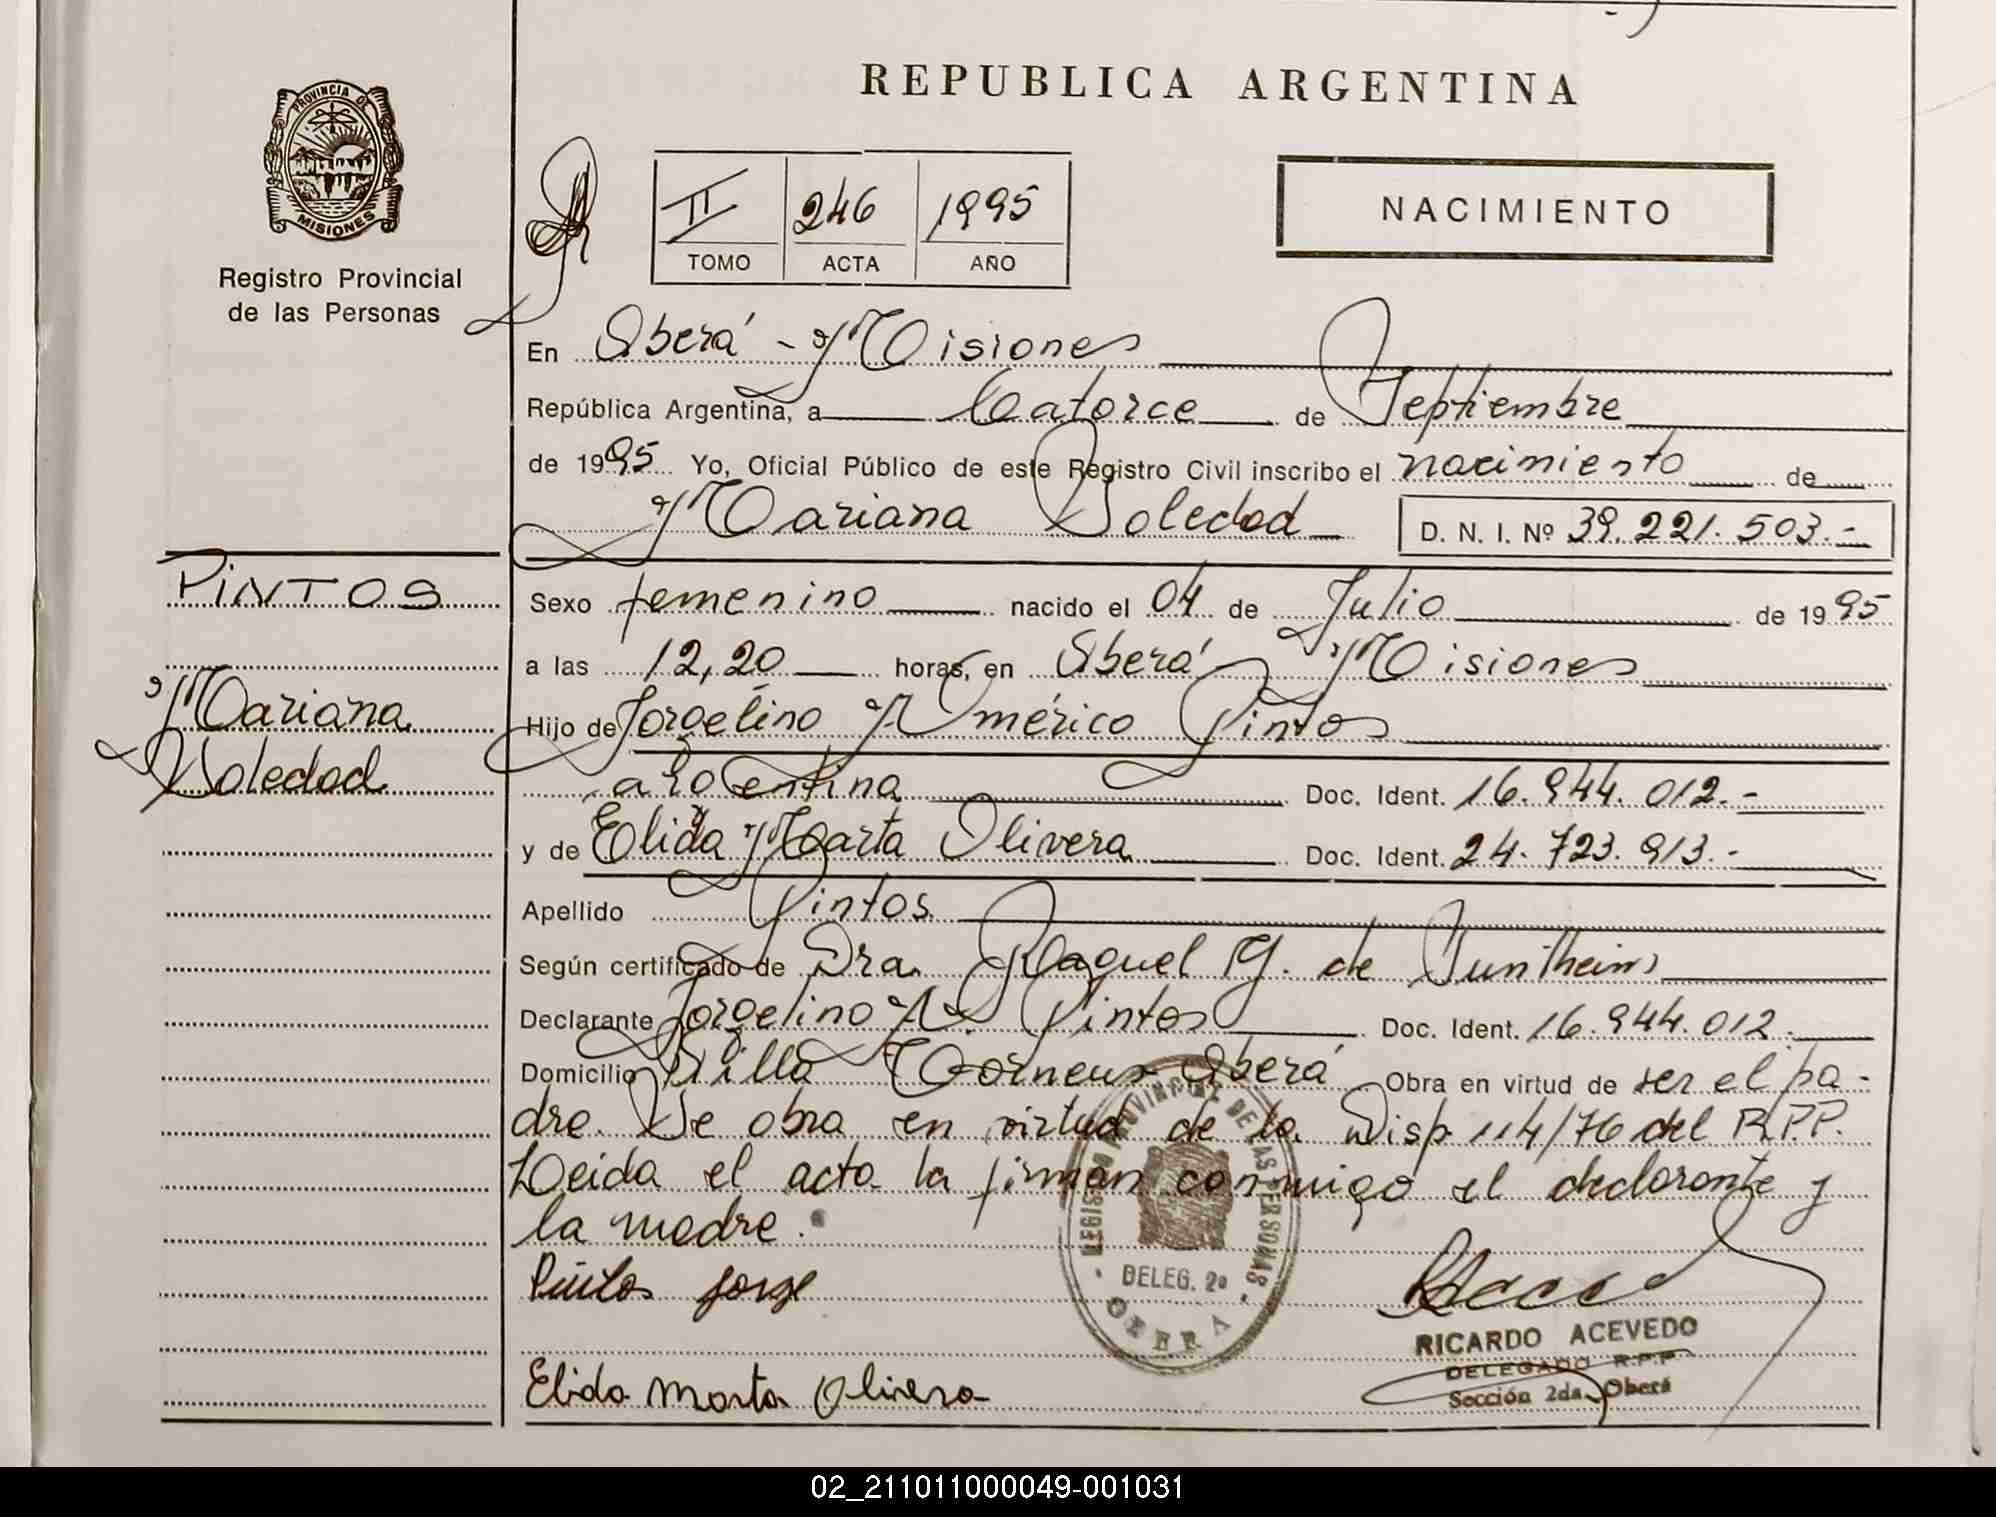 REPUBLICA ARGENTINA
PROVINCIA DE
MISIONES
Registro Provincial
de las Personas
II 246 1995
TOMO ACTA AÑO
NACIMIENTO
En Oberá - Misiones
República Argentina, a Catorce de Septiembre
de 1995 Yo, Oficial Público de este Registro Civil inscribo el nacimiento de
Mariana Soledad D. N. I. Nº 39.221.503.-
PINTOS
Mariana
Soledad
Sexo femenino nacido el 04 de Julio de 1995
a las 12,20 horas, en Oberá Misiones
Hijo de Jorgelino Américo Pintos
argentina Doc. Ident. 16.944.012.-
y de Elida Marta Olivera Doc. Ident. 24.723.913.-
Apellido Pintos
Según certificado de Dra. Raquel G. de
Declarante Jorgelino A. Pintos Doc. Ident. 16.944.012.
Domicilio Villa Oberá Obra en virtud de ser el pa-
dre. Se obra en virtud de la Disp. 114/76 del R.P.P.
Leída el acta la firman conmigo el declarante y
la madre.
Pintos Jorge
Elida Marta Olivera
REGISTRO PROVINCIAL DE LAS PERSONAS
DELEG. 2ª
OBERA
RICARDO ACEVEDO
DELEGADO R.P.P
Sección 2da. Oberá
02_211011000049-001031